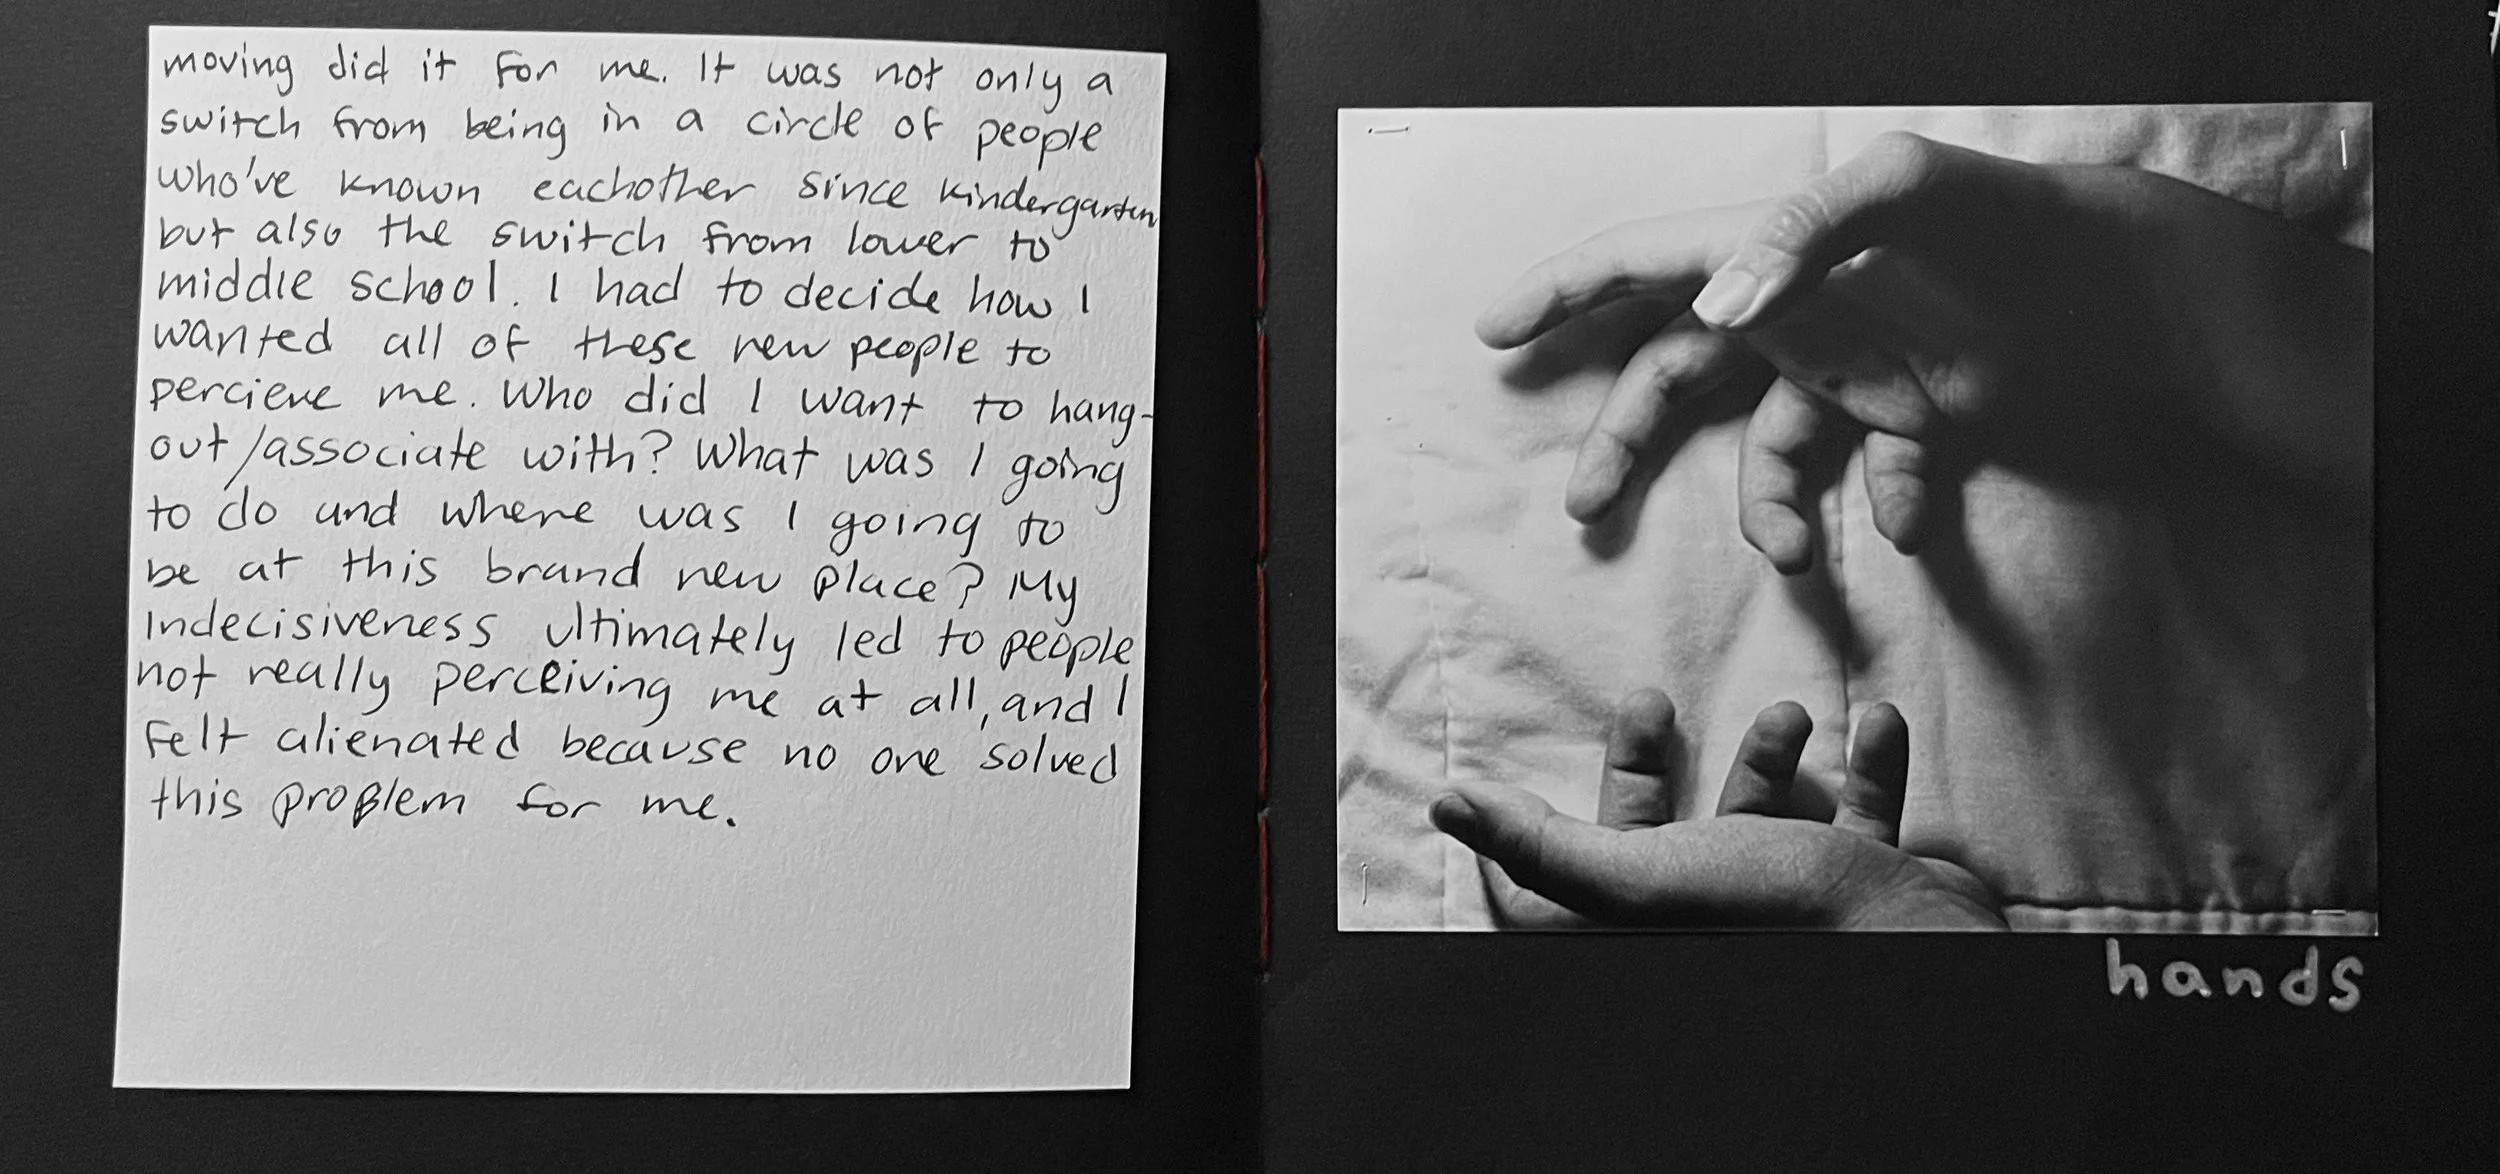 moving did it for me. It was not only a
switch from being in a circle of people
who've known eachother since kindergarten
but also the switch from lower to
middle school. I had to decide how I
wanted all of these new people to
percieve me. Who did I want to hang-
out/associate with? What was I going
to do and where was I going to
be at this brand new place? My
Indecisiveness ultimately led to people
not really perceiving me at all, and I
felt alienated because no one solved
this problem for me.
hands